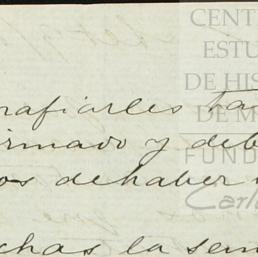 CENT
ESTU
DE HIS
DE M
FUND
Carlo
rafiarles ha
irmado y deb
os dehaber
chas la sem